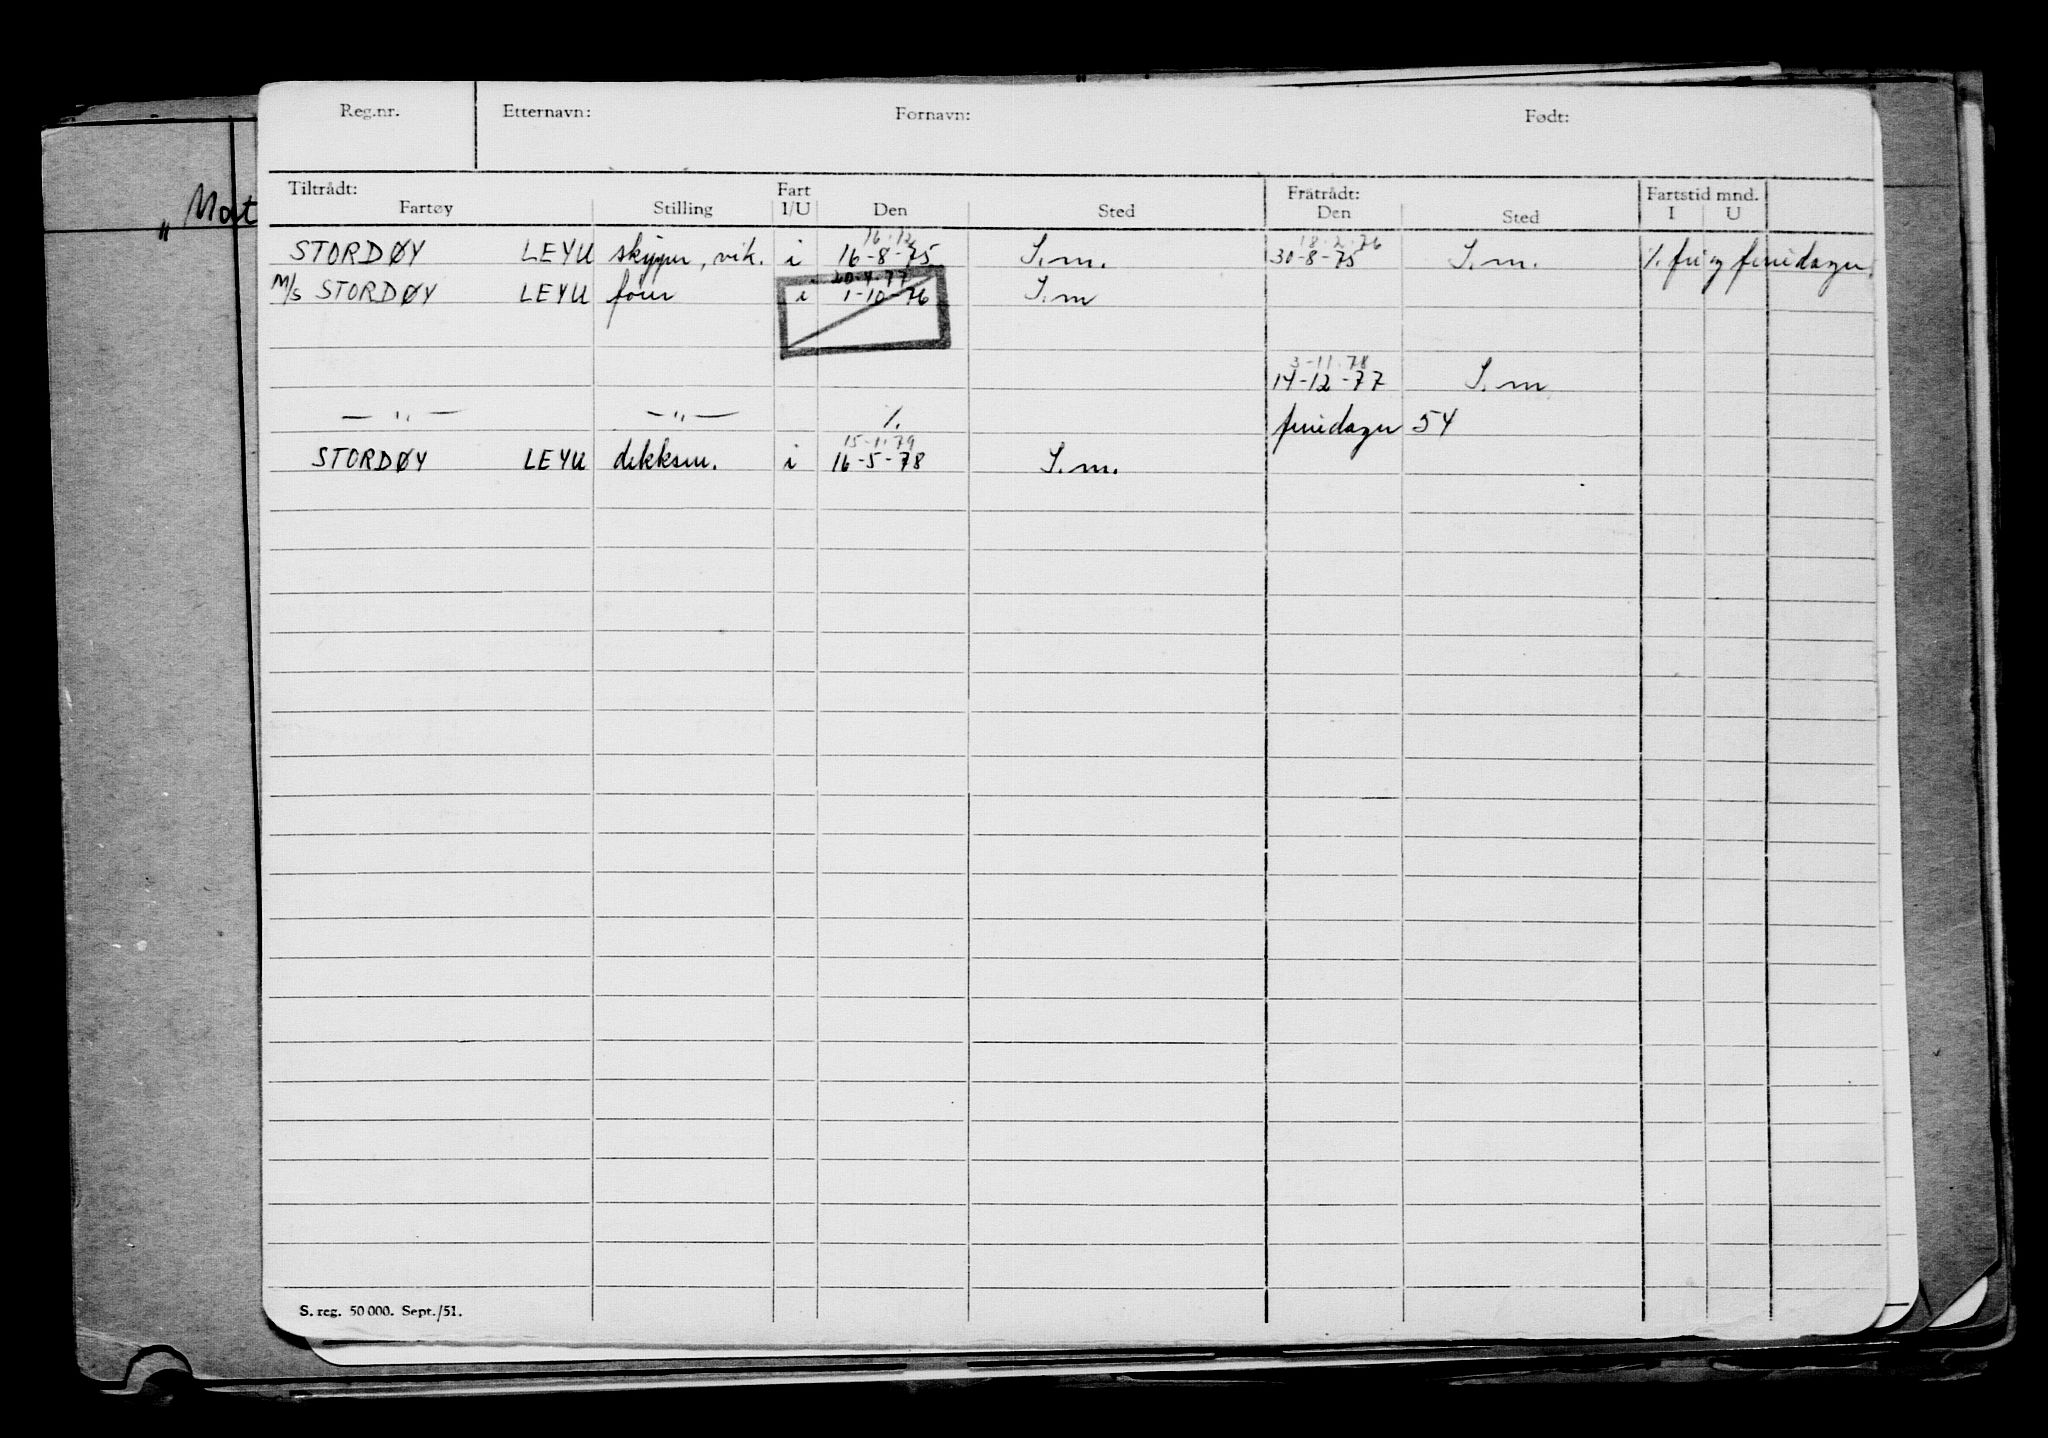 Reg.nr. Etternavn: Fornavn: Født:
Tiltrådt: Fart Fratrådt: Fartstid mnd.
Fartøy Stilling I/U Den Sted Den Sted I U
„ Mat
16.12 18.2.76
STORDØY LEYU skipper, vik. i 16-8-75 S.m. 30-8-75 S.m. %. fri og feriedager.
20.4.77
M/S STORDØY LEYU i 1-10-76 S.m
3-11.78
14-12-77 S.m
— „ — — „ — %. feriedager 54
15-1.79
STORDØY LEYU dekksm. i 16-5-78 S.m.
S. reg. 50 000. Sept./51.